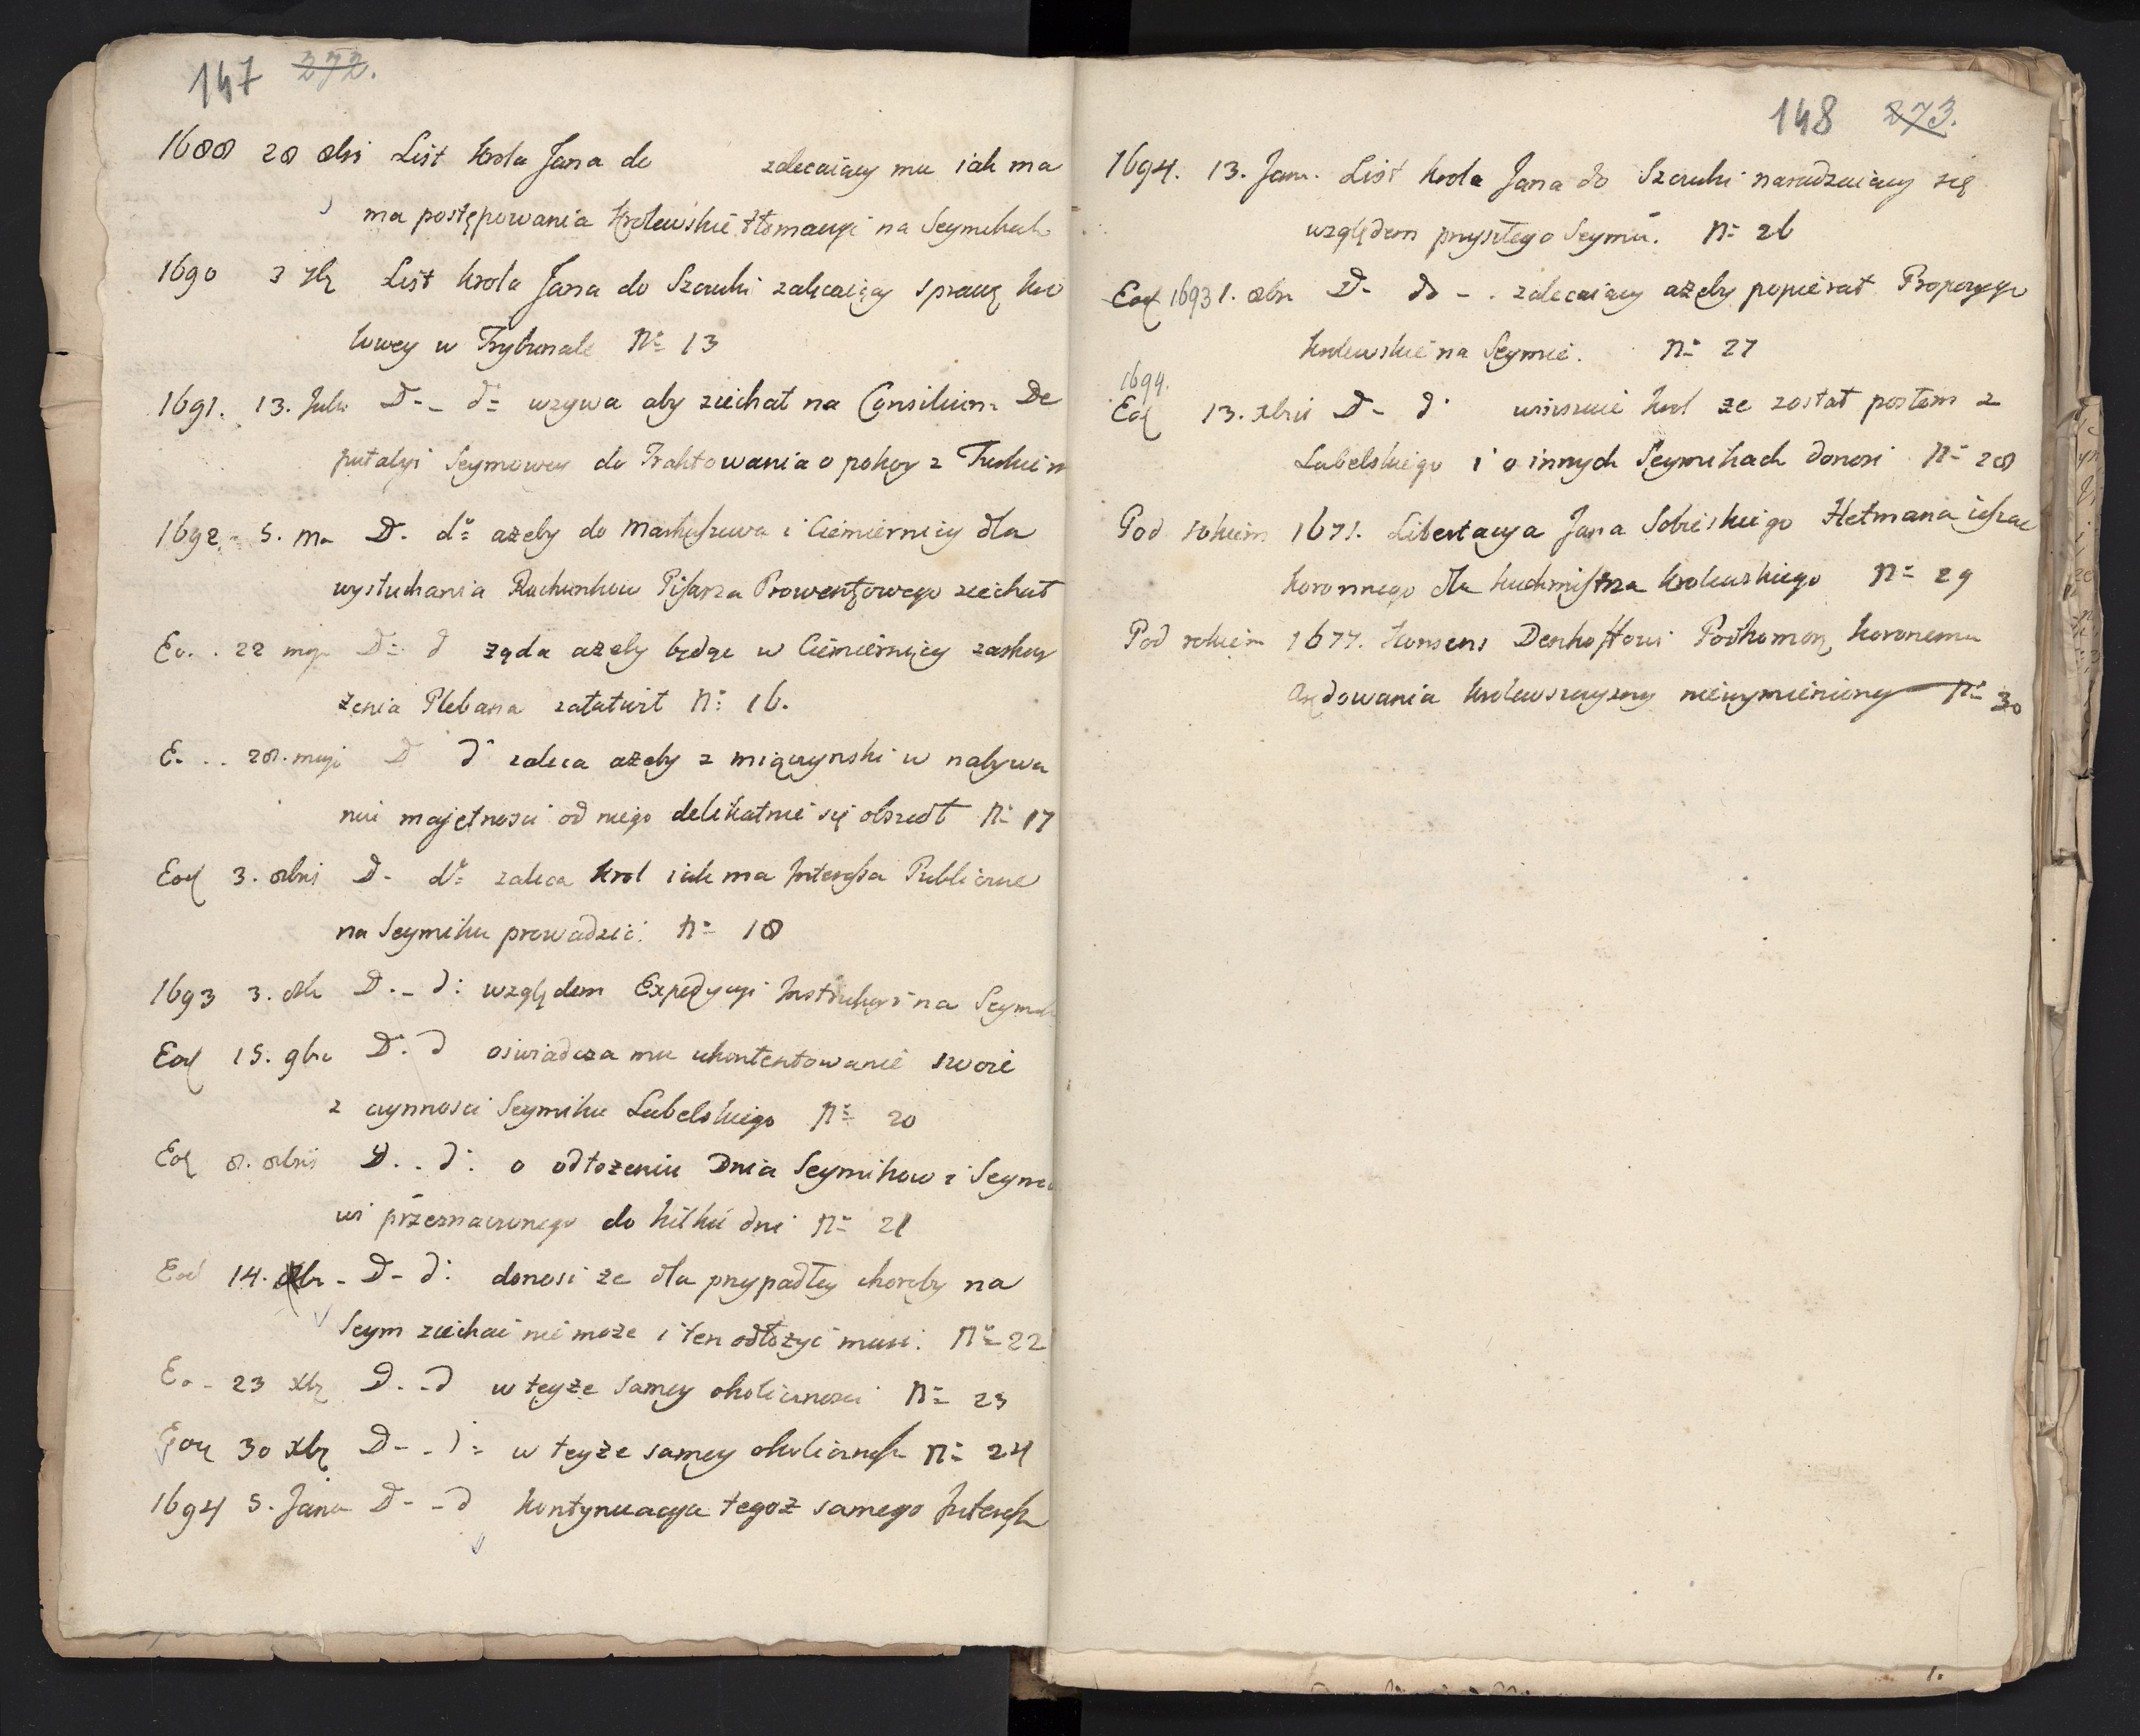 147 272.
1688 28 8bri List Krola Jana do zalecaiący mu iak ma
ma postępowania Krolewskie tłomaczyć na Seymikach
1690 3 7bę List Krola Jana do Szczuki zalęcaiący sprawę Kro
lowey w Trybunale No 13
1691. 13. Julii D. - do wzywa aby ziechał na Consilium De
putacyi Seymowey do Traktowania o pokoy z Turkiem
1692. 5. Ma D. do azeby do Markuszewa i Ciemiernicy dla
wysłuchania Rachunkow Pisarza Prowentowego ziechał
Eo. . 22 maja D. d ząda azeby będąc w Ciemiernicy zaskar
żenia Plebana załatwił No 16.
E. . . 28. maji D do zaleca azeby z Miączynski w nabywa
niu majętnosci od niego delikatnie się obszedł No 17
Eod 3. 8bris D. do zaleca Krol iak ma Interessa Publiczne
na Seymiku prowadzić. No 18
1693 3. 8b D. - d: względem Expedycyi Instrukcyi na Seymik
Eod 15. 9br D. d oswiadcza mu ukontentowanie swoie
z czynnosci Seymiku Lubelskiego No 20
Eod 8. 8bris D. . d: o odłozeniu Dnia Seymikow i Seymo
wi przeznaczonego do kilku dni No 21
Eod 14. Xbr - D - d: donosi ze dla przypadłey choroby na
Seym ziechać nie moze i ten odłożyć musi. No 22
Eo - 23 Xbę D. - d w teyże samey okolicznosci No 23
Eod 30 Xbę D - - d: w teyże samey okoliczności No 24
1694 5. Janu D - - d Kontynuacya tegoż samego Interessu
148 273.
1694. 13. Janu. List Krola Jana do Szczuki naradzaiący się
względem przyszłego Seymu. No 26
Eod 1693 1. 8br D - do - . zalecaiący azeby popierał Propozycye
Krolewskie na Seymie. No 27
1694.
Eod 13. Xbris D - d: winszuie Krol ze został posłem z
Lubelskiego i o innych Seymikach donosi No 28
Pod rokiem 1671. Libertacya Jana Sobieskiego Hetmana
koronnego dla kuchmistrza Krolewskiego No 29
Pod rokiem 1677. Konsens Denhoffowi Podkomorz. koronemu
Arędowania krolewszczyzny niewymieniony No 30
1.